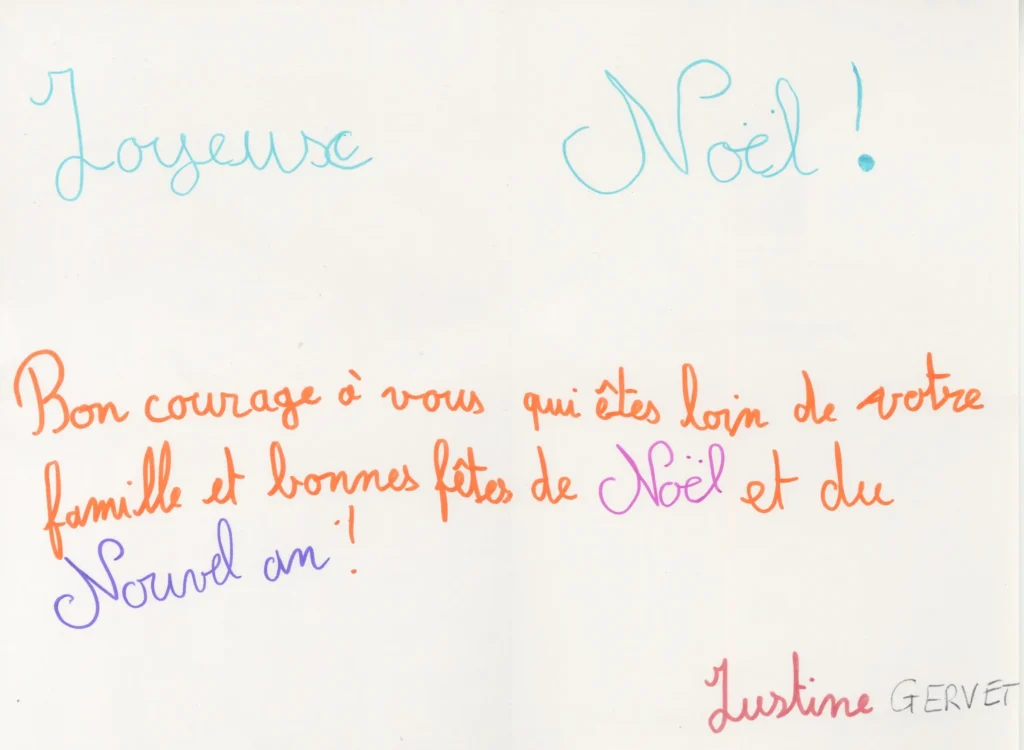 Joyeuse Noël !
Bon courage à vous qui êtes loin de votre
famille et bonnes fêtes de Noël et du
Nouvel an !
Justine GERVET